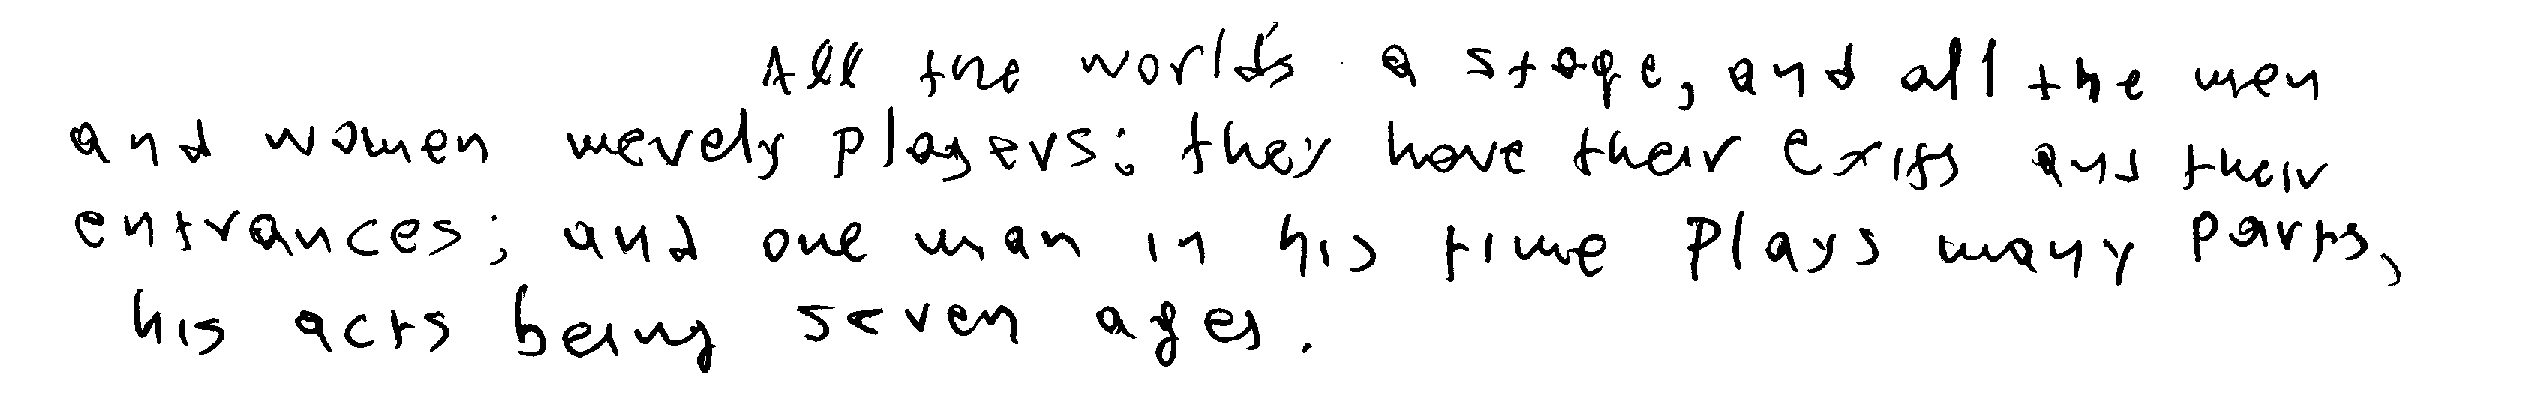 All the world's a stage, and all the men
and women merely players: they have their exits and their
entrances; and one man in his time plays many parts,
his acts being seven ages.